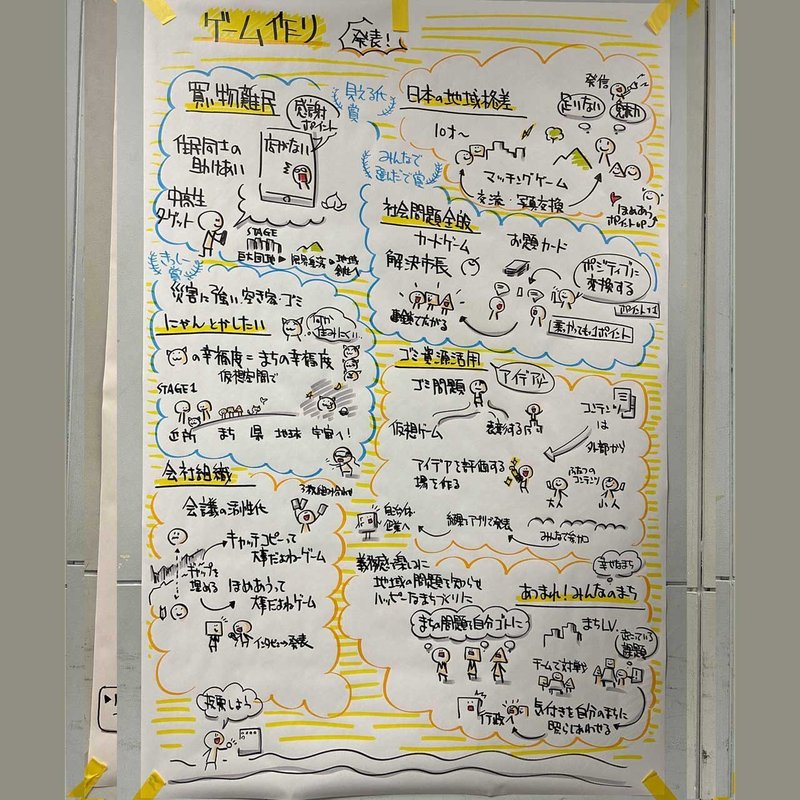 ゲーム作り
発表!
買い物難民
感謝
ポイント
店がない
住民同士の
助けあい
中高生
ターゲット
STAGE
巨大団地
限界集落
地域
賞
日本の地域格差
発信
足りない
魅力
10才〜
マッチングゲーム
交流・写真交換
ほめあう
ポイントUP
みんなで
選んだで賞
社会問題全般
カードゲーム
お題カード
解決市長
ポジティブに
変換する
ポイント
ポイント
きっしー
賞
災害に強い 空き家・ゴミ
にゃんとかしたい
何か
住みにくい
の幸福度=まちの幸福度
仮想空間で
STAGE1
近所 まち 県 地球 宇宙へ!
ゴミ資源活用
アイデア!
ゴミ問題
コンテンツ
は
外部から
仮想ゲーム
アイデアを評価する
場を作る
ふたつの
コンテンツ
大人
小人
みんなで参加
アプリで発表
自治体
企業へ
会社組織
会議の活性化
キャッチコピーって
大事だよねゲーム
ギャップを
埋める
ほめあうって
大事だよねゲーム
インタビュー発表
義務感を楽しみに
地域の問題を知らせ
ハッピーなまちづくりに
まちの問題を自分ゴトに
行政へ
幸せなまち
あつまれ!みんなのまち
まちLV.
起こっている
課題
チームで対戦
気付きを自分のまちに
照らしあわせる
投票しよう